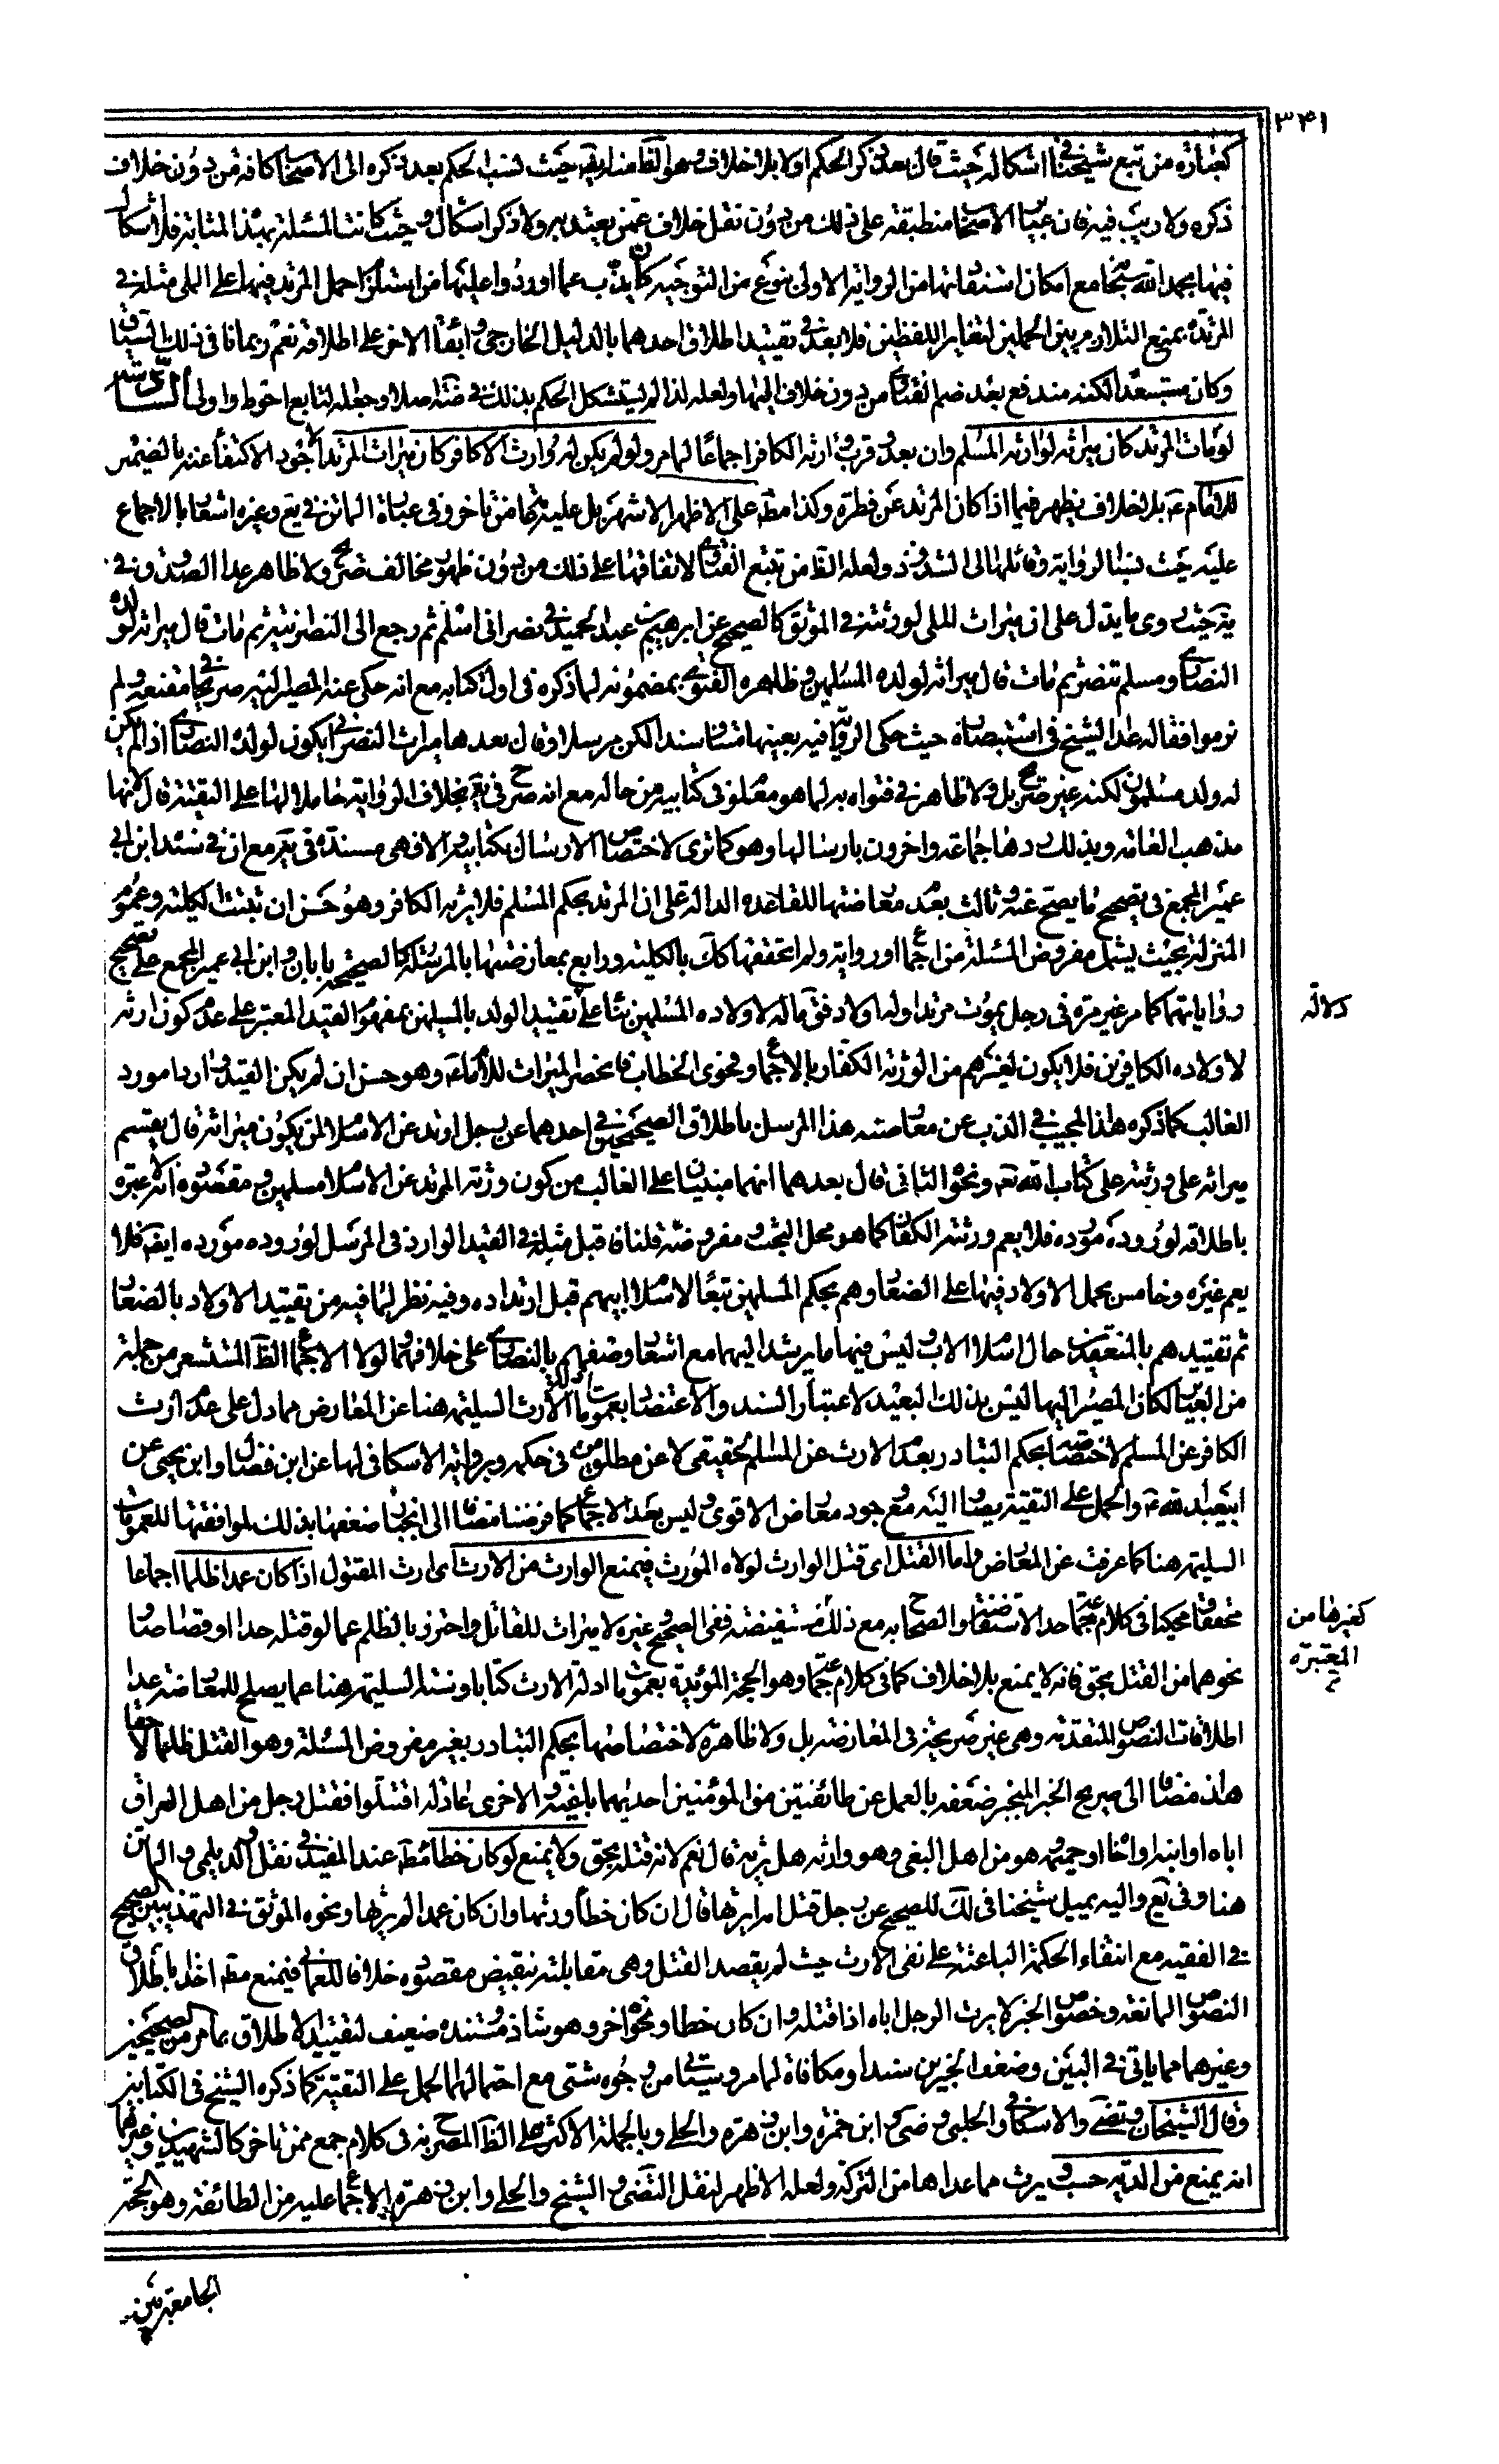 ۳۴۱
كغيره من تتبع شيخنا في اشكاله حيث قال بعد ذكر الحكم اولا بلا خلاف وهو الظ منه ايضه حيث نسب الحكم بعد ذكره الى الاصحاب كافة من دون خلاف
ذكره ولا ريب فيه فان عبار الاصحاب منطبقة على ذلك من دون نقل خلاف عمن يعتد به ولا ذكر اشكال وحيث كانت المسئلة بهذا المثابة فلا اشكال
فيها بحمد الله سبحانه مع امكان استفادتها من الرواية الاولى بنوع من التوجيه كان يذب عما اوردوا عليها من استلزام حمل المرتد فيها على الملى مثله في
المرتدة بمنع التلازم بين الحملين لتغاير اللفظين فلا بعد في تقييد اطلاق احدهما بالدليل الخارجى وابقاء الاخر على اطلاقه نعم ربما نافى ذلك السياق
وكان مستبعدا لكنه مندفع بعد ضم الفتاوى من دون خلاف اليها ولعله لذا لم يستشكل الحكم بذلك في ضه اصلا وجعله تتابع احوط واولى السادس
لو مات المرتد كان ميراثه لوارثه المسلم وان بعد وقرب وارثه الكافر اجماعا لما مر ولو لم يكن له وارث الا كافر كان ميراث المرتد الاجود الاكتفاء عنه بالضمير
للامام ع بلا خلاف يظهر فيما اذا كان المرتد عن فطرة وكذا مطه على الاظهر الاشهر بل عليه عامة من تاخر وفى عبارة الماتن في يع وغيره اشعار بالاجماع
عليه حيث نسبنا الرواية وقائلها الى الشذوذ ولعله الظ من تتبع الفتاوى لاتفاقها على ذلك من دون ظهور مخالف صريح ولا ظاهر عدا الصدوق في
يه حيث روى ما يدل على ان ميراث الملى لورثته في الموثق كالصحيح عن ابرهيم بن عبد الحميد في نصرانى اسلم ثم رجع الى النصرانية ثم مات قال ميراثه لولده
النصارى ومسلم تنصر ثم مات قال ميراثه لولده المسلمين وظاهره الفتوى بمضمونه لما ذكره في اول كتابه مع انه حكى عنه المصير اليه صريحا في مقنعه ولم
نر موافقا له عدا الشيخ في استبصاره حيث حكى الرواية فيه بعينها متنا وسندا لكن مرسلا وقال بعدها ميراث النصرانى انما يكون لولده النصارى اذا لم يكن
له ولد مسلمون لكنه غير صريح بل ولا ظاهر في فتواه به لما هو معلوم في كتابيه من حاله مع انه صرح في يه بخلاف الرواية حاملا لها على التقية قال لانها
مذهب العامة وبذلك ردها جماعة واخرون بارسالها وهو كما ترى لاختصاص الارسال بكتابيه والا فهى مسندة في يه مع ان في سنده ابن ابى
عمير المجمع في تصحيح ما يصح عنه وثالث بعد معارضتها للقاعدة الدالة على ان المرتد بحكم المسلم فلا يرثه الكافر وهو حسن ان تثبت الكلية وعموم
المنزلة بحيث يشمل مفروض المسئلة من اجماع او رواية ولم اتحققها كك بالكلية ورابع بمعارضتها بالمرسلة كالصحيحة بابان وابن ابى عمير المجمع على تصحيح
رواياتهما كما مر غير مرة في رجل يموت مرتدا وله اولاد فق ماله لاولاده المسلمين بناء على تقييد الولد بالمسلمين بمفهوم القيد المعتبر على عدم كون ارثه
لاولاده الكافرين فلا يكون لغيرهم من الورثة الكفار بالاجماع وفحوى الخطاب فانحصر الميراث للامام ع وهو حسن ان لم يكن القيد واردا مورد
الغالب كما ذكره هذا المجيب في الذب عن معارضته هذا المرسل باطلاق الصحيحين في احدهما عن رجل ارتد عن الاسلام لمن يكون ميراثه قال يقسم
ميراثه على ورثته على كتاب الله تعه ونحوه الثانى قال بعدهما انهما مبنيان على الغالب من كون ورثة المرتد عن الاسلام مسلمين ومقتضاه انه لا عبرة
باطلاقه لوروده مورده فلا يعم ورثته الكفار كما هو محل البحث ومفروضه قلنا ان قبل مثله في القيد الوارد في المرسل لوروده مورده ايضه فلا
يعم غيره وخامس بحمل الاولاد فيها على الصغار وهم بحكم المسلمين تبعا لاسلام ابيهم قبل ارتداده وفيه نظر لما فيه من تقييد الاولاد بالصغار
ثم تقييدهم بالمنعقدين حال اسلام الاب وليس فيها ما يرشد اليهما مع اشعار وصفهم بالنصارى على خلافهما ولولا الاجماع الظ المستشعر من جملة
من العبائر لكان المصير اليها ليس بذلك البعيد لاعتبار السند والاعتضاد بعمومات ادلة الارث السليمة هنا عن المعارض مما دل على عدم ارث
الكافر عن المسلم لاختصاصه بحكم التبادر بعدم الارث عن المسلم الحقيقى لا عن مطلق من في حكمه وبرواية الاسكافى لها عن ابن فضال وابن يحيى عن
ابيعبد الله ع والحمل على التقية يصار اليه مع وجود معارض الاقوى وليس بعد الاجماع كما فرضنا مضافا الى انجبار ضعفها بذلك لموافقتها للعمومات
السليمة هنا كما عرفت عن المعارض واما القتل اى قتل الوارث لولاه المورث فيمنع الوارث من الارث اى ارث المقتول اذا كان عمدا ظلما اجماعا
محققا ومحكيا في كلام جماعة حد الاستفاضة والصحاح به مع ذلك مستفيضة ففى الصحيح وغيره لا ميراث للقاتل واحترز بالظلم عما لو قتله حدا او قصاصا او
نحوهما من القتل بحق فانه لا يمنع بلا خلاف كما في كلام جماعة وهو الحجة المؤيدة بعمومات ادلة الارث كتابا وسنة السليمة هنا عما يصلح للمعارضة عدا
اطلاقات النصوص المتقدمة وهى غير صريحة في المعارضة بل ولا ظاهرة لاختصاصها بحكم التبادر بغير مفروض المسئلة وهو القتل ظلما لا حقا
هذا مضافا الى صريح الخبر المنجبر ضعفه بالعمل عن طائفتين من المؤمنين احديهما باغية والاخرى عادلة اقتتلوا فقتل رجل من اهل العراق
اباه او ابنه او اخاه او حميمه وهو من اهل البغى وهو وارثه هل يرثه قال نعم لانه قتله بحق ولا يمنع لو كان خطاء مطه عند المفيد في نقل والديلمى والماتن
هنا وفى يع واليه يميل شيخنا في لك للصحيح عن رجل قتل امه ايرثها قال ان كان خطأ ورثها وان كان عمدا لم يرثها ونحوه الموثق في التهذيبين الصحيح
في الفقيه مع انتفاء الحكمة الباعثة على نفى الارث حيث لم يقصد القتل وهى مقابلته بنقيض مقصوده خلافا للعمانى فيمنع مطه اخذا باطلاق
النصوص المانعة وخصوص الخبر لا يرث الرجل اباه اذا قتله وان كان خطا ونحوه اخر وهو شاذ ومستنده ضعيف لتقييد الاطلاق بما مر من الصحيحين
وغيرهما مما ياتى في البين وضعف الخبرين سندا ومكافاة لما مر وسياتى من وجوه شتى مع احتمالهما الحمل على التقية كما ذكره الشيخ في الكتابين
وقال الشيخان وتضى والاسكافى والحلبى وضى وابن حمزة وابن زهرة والحلى وبالجملة الاكثر على الظ المصرح به في كلام جمع ممن تاخر كالشهيدين وغيرهما
انه يمنع من الدية حسب ويرث مما عداها من التركة ولعله الاظهر لنقل المرتضى والشيخ والحلى وابن زهرة الاجماع عليه من الطائفة وهو الحجة
دلالة
كغيرها من
المعتبرة
الجامعة بين